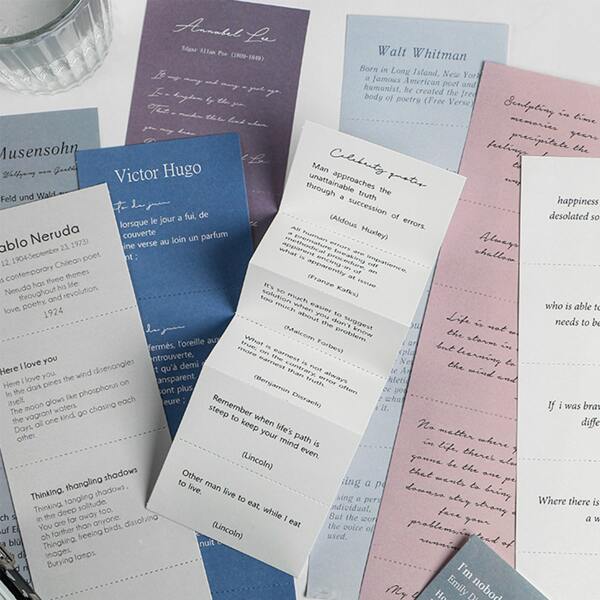 Annabel Lee
Edgar Allan Poe (1809-1849)
It was many and many a year ago
In a kingdom by the sea
That a maiden there lived whom
you may know
Walt Whitman
Born in Long Island, New York
a famous American poet and
humanist, he created the free
body of poetry (Free Verse)
Musensohn
Wolfgang von Goethe
Feld und Wald zu
Victor Hugo
lorsque le jour a fui, de
couverte
ine verse au loin un parfum
fermés, l'oreille aux
entrouverte,
t qu'à demi
transparent
ablo Neruda
12, 1904-September 23, 1973)
s contemporary Chilean poet.
Neruda has three themes
throughout his life:
love, poetry, and revolution.
1924
Here I love you
Here I love you.
In the dark pines the wind disentangles
itself.
The moon glows like phosphorus on
the vagrant waters.
Days, all one kind, go chasing each
other.
Thinking, thangling shadows
Thinking, tangling shadows
in the deep solitude.
You are far away too,
oh farther than anyone.
Thinking, freeing birds, dissolving
images,
Burying lamps.
Celebrity quotes
Man approaches the
unattainable truth
through a succession of errors.
(Aldous Huxley)
All human errors are impatience,
a premature breaking off
methodical procedure, an
apparent encing-in of
what is apparently at issue
(Franze Kafks)
It's so much easier to suggest
solution when you don't know
too much about the problem
(Malcom Forbes)
What is earnest is not always
true; on the contrary, error often
more earnest than truth.
(Benjamin Disraeli)
Remember when life's path is
steep to keep your mind even.
(Lincoln)
Other man live to eat, while I eat
to live.
(Lincoln)
Sculpting in time
memories years
precipitate the
feelings
Always
shallow
Life is not
the storm is
but learning to
the wind and
No matter where
in life, there
gonna be the one
that wants to bring
downs stay strong
face your
problems instead of
happiness
desolated so
who is able to
needs to be
If i was brav
diffe
Where there is
a w
sing a pers
individual,
But the wor
the voice of
used.
I'm nobod
Emily Di